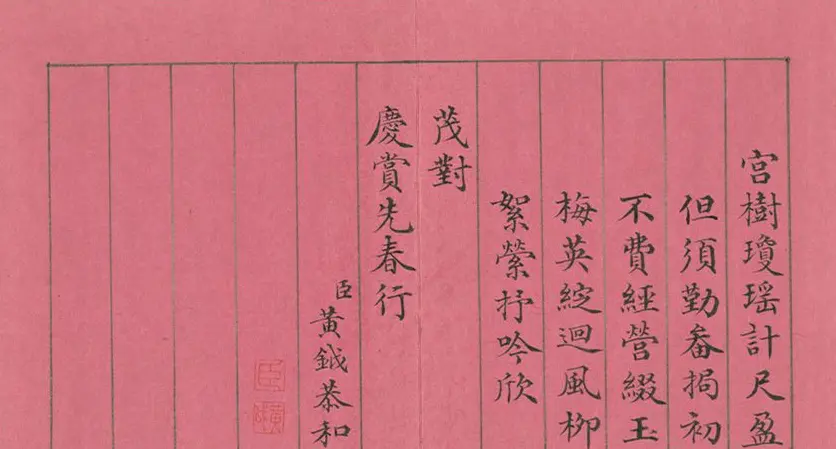 宮樹瓊瑤計尺盈
但須勤畚挶初
不費經營綴玉
梅英綻迴風柳
絮縈抒吟欣
茂對
慶賞先春行
臣黃鉞恭和
臣